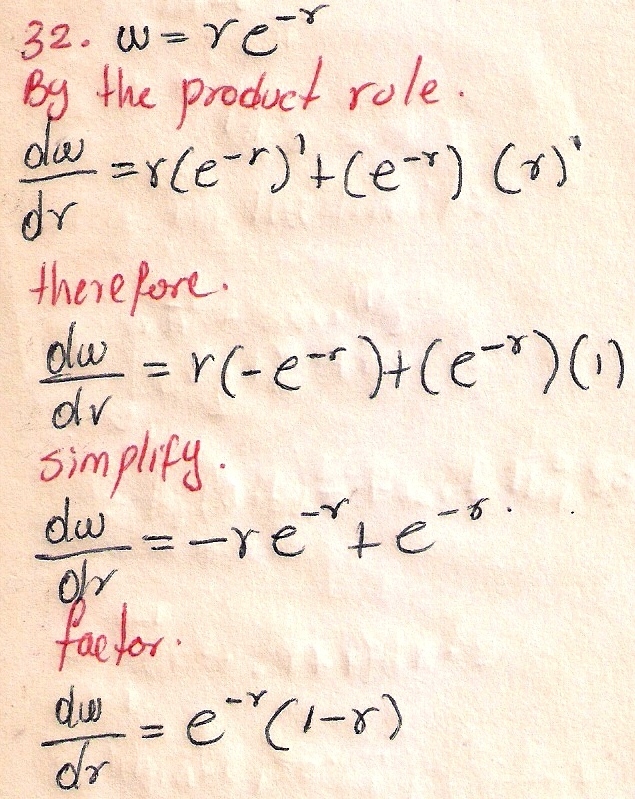 32. w = re^-r
By the product rule.
dw/dr = r(e^-r)' + (e^-r) (r)'
therefore.
dw/dr = r(-e^-r) + (e^-r)(1)
simplify.
dw/dr = -re^-r + e^-r.
factor.
dw/dr = e^-r(1-r)